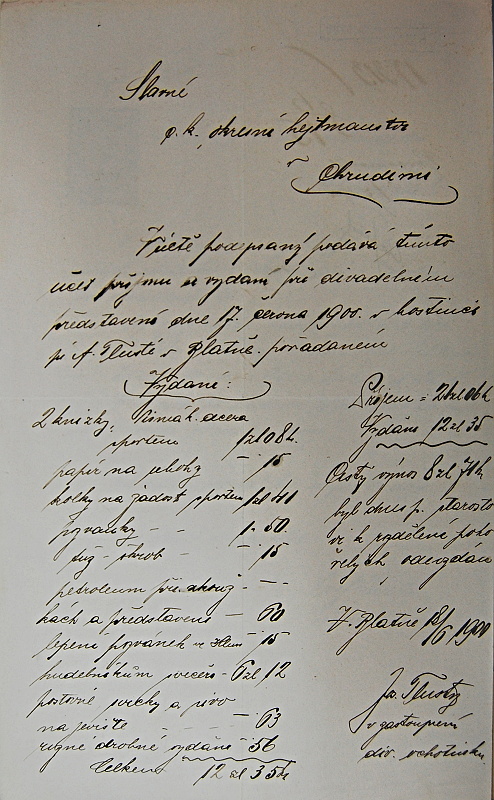 Slavné
c. k. okresní hejtmanstvo
v
Chrudimi
Uctě podepsaný podává tímto
účet příjmu a vydání při divadelném
představení dne 17. června 1900. v hostinci
pí A. Tlusté v Blatně pořádaném
Vydání:
2 knížky, Písmák. dcera
portem 1 zl 08 k.
papír na úlohy — 15
kolky na žádost portem 1 zl 41
pozvánky - - 1.50
- 15
petroleum při zkouž- - -
kách a představení — 60
lepení pozvánek 15
hudebníkům večeř. 6 zl 12
a pivo
na jeviště - - - 63
různé drobné vydání 56
Celkem 12 zl 35 k
Příjem = 21 zl 06 k
Vydání 12 zl 35
Čistý výnos 8 zl 71 k
byl dnes p. starosto
vi k rozdělení poho
řelých odevzdán
V Blatně 18/6 1900
Jos. Tlustý
v zastoupení
div. ochotníků